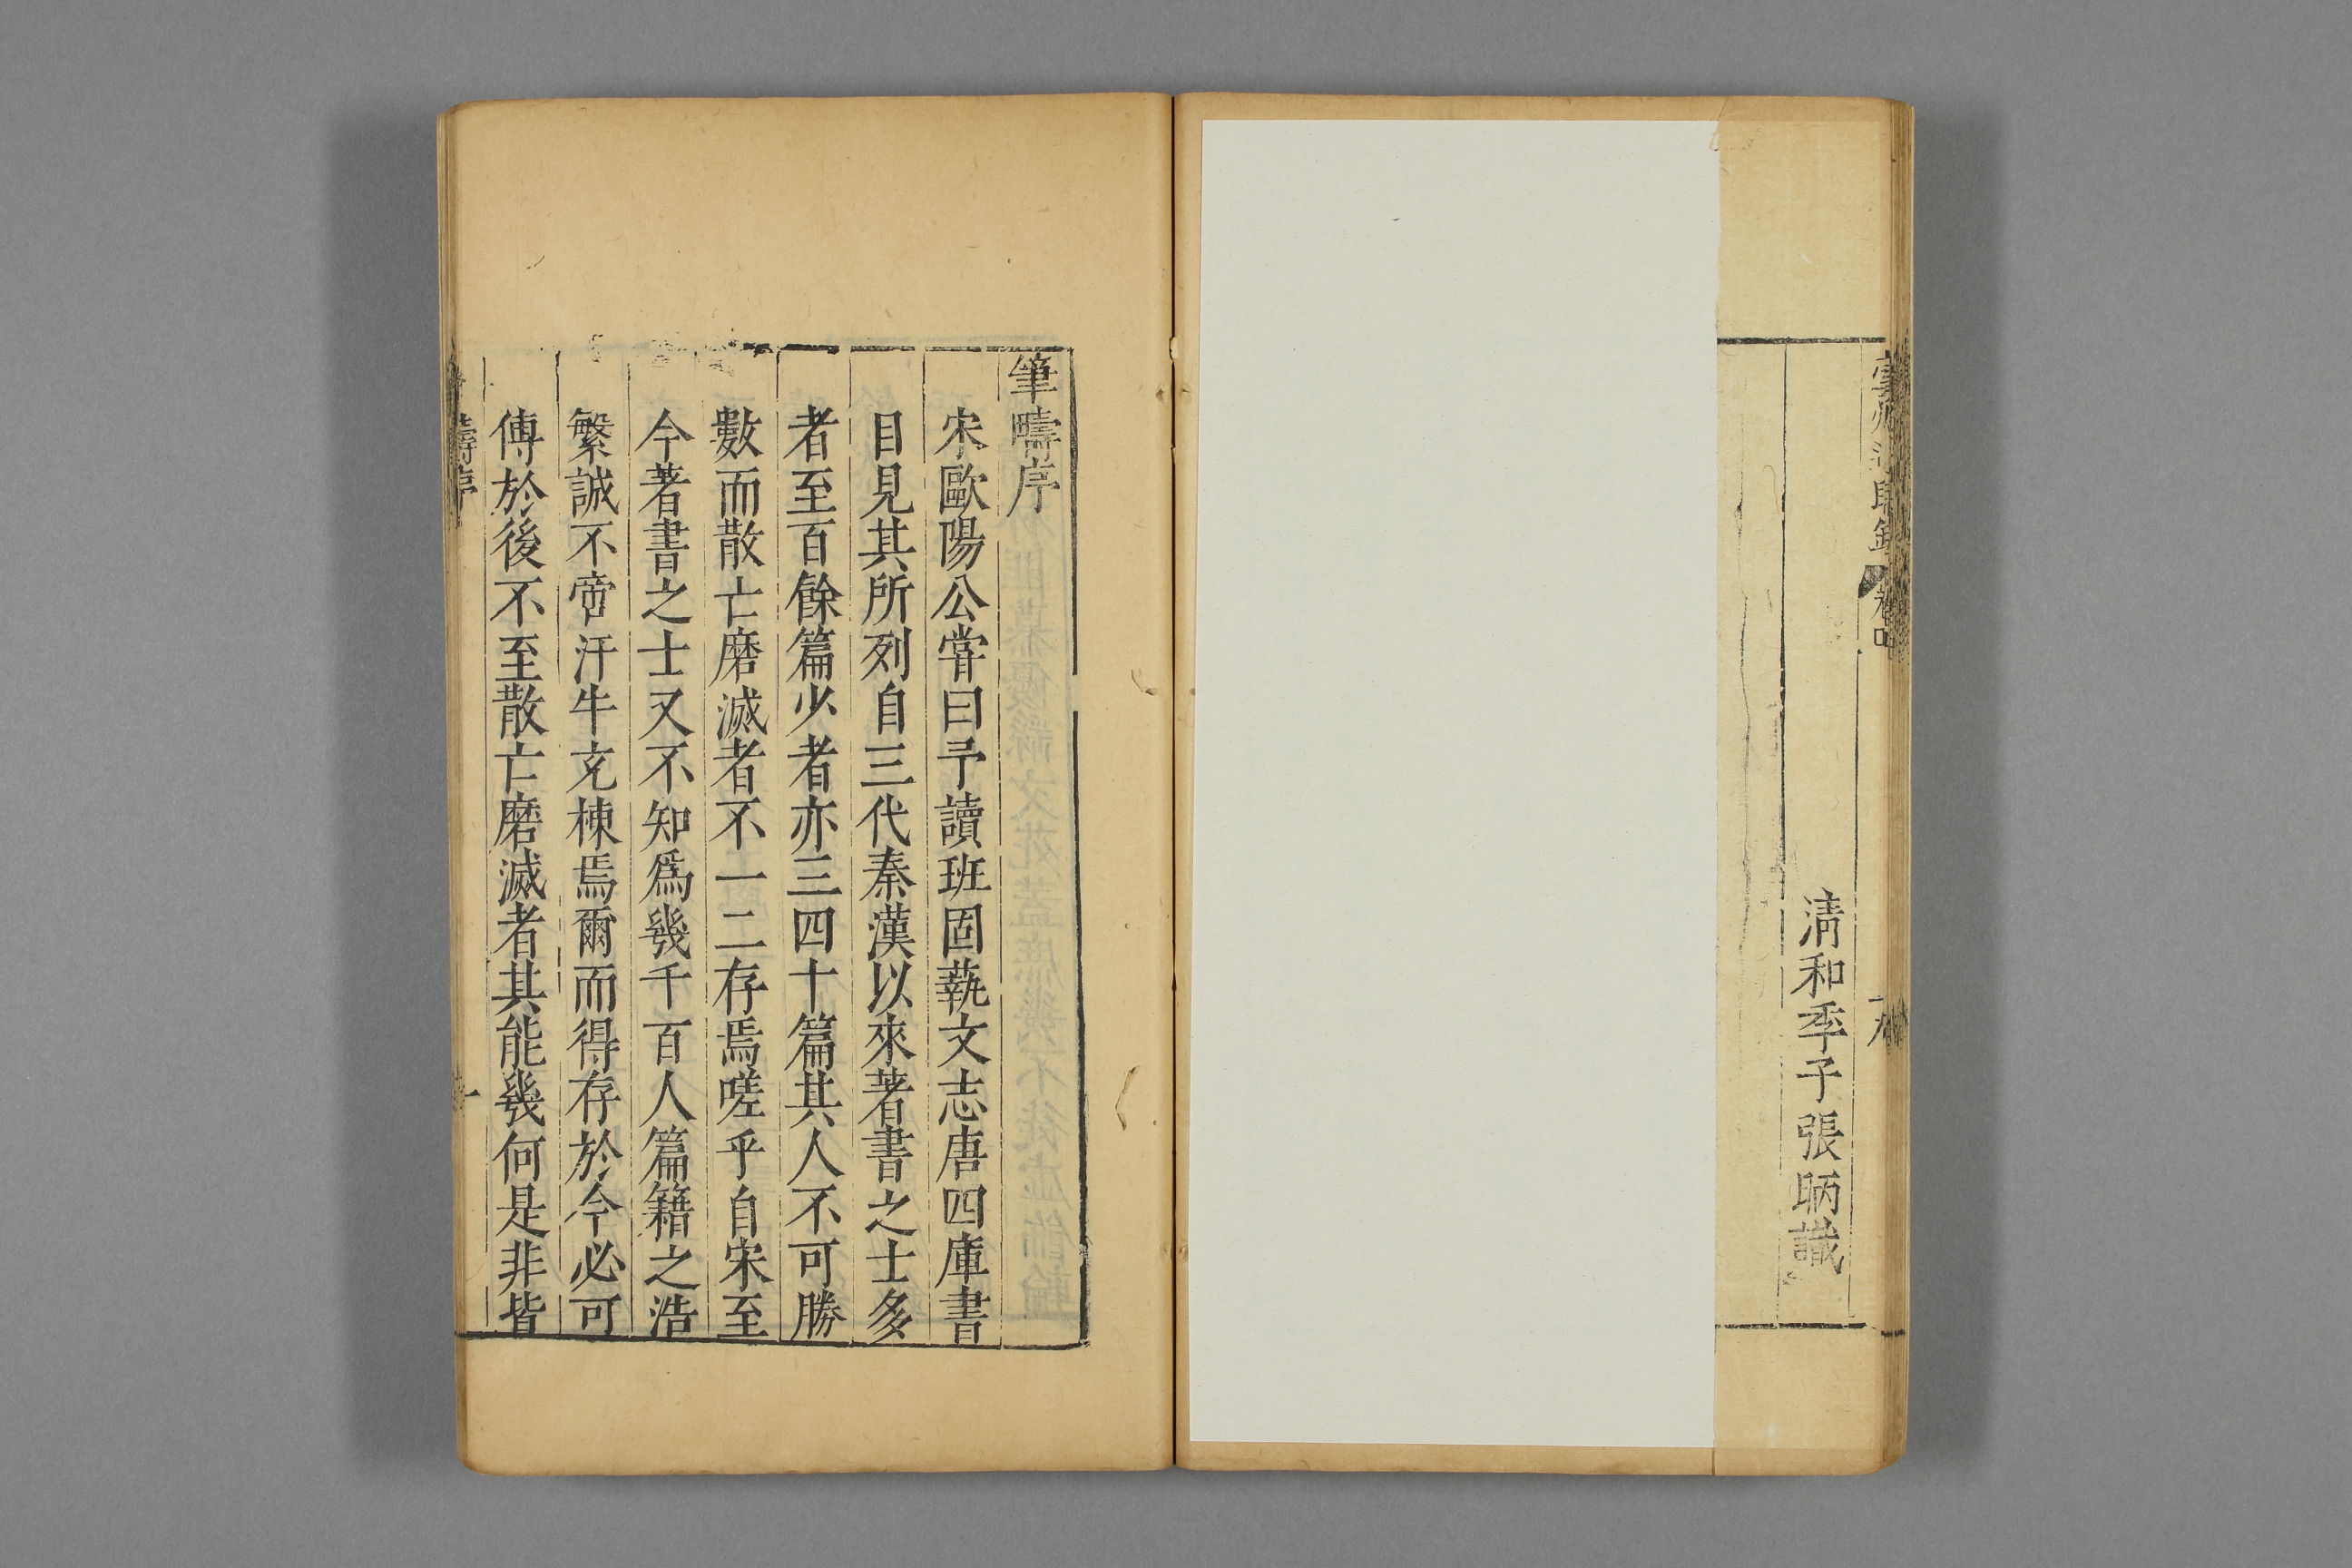 清和季子張昞識
筆疇序
宋歐陽公嘗曰予讀班固藝文志唐四庫書
目見其所列自三代秦漢以來著書之士多
者至百餘篇少者亦三四十篇其人不可勝
數而散亡磨滅者不一二存焉嗟乎自宋至
今著書之士又不知爲幾千百人篇籍之浩
繁誠不啻汗牛充棟焉爾而得存於今必可
傳於後不至散亡磨滅者其能幾何是非皆
疇序
一